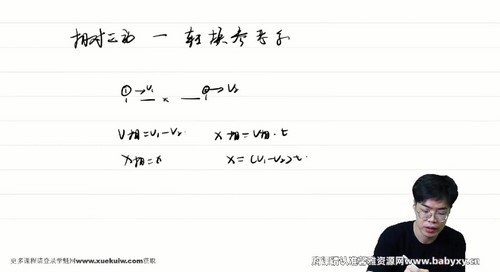 相对运动 — 转换参考系
① → v₁ — x — ② → v₂
v相=v₁-v₂ x相=v相·t
x相=x x=(v₁-v₂)t
更多课程请登录学魁网www.xuekulw.com获取
资源网www.babyxy.cn